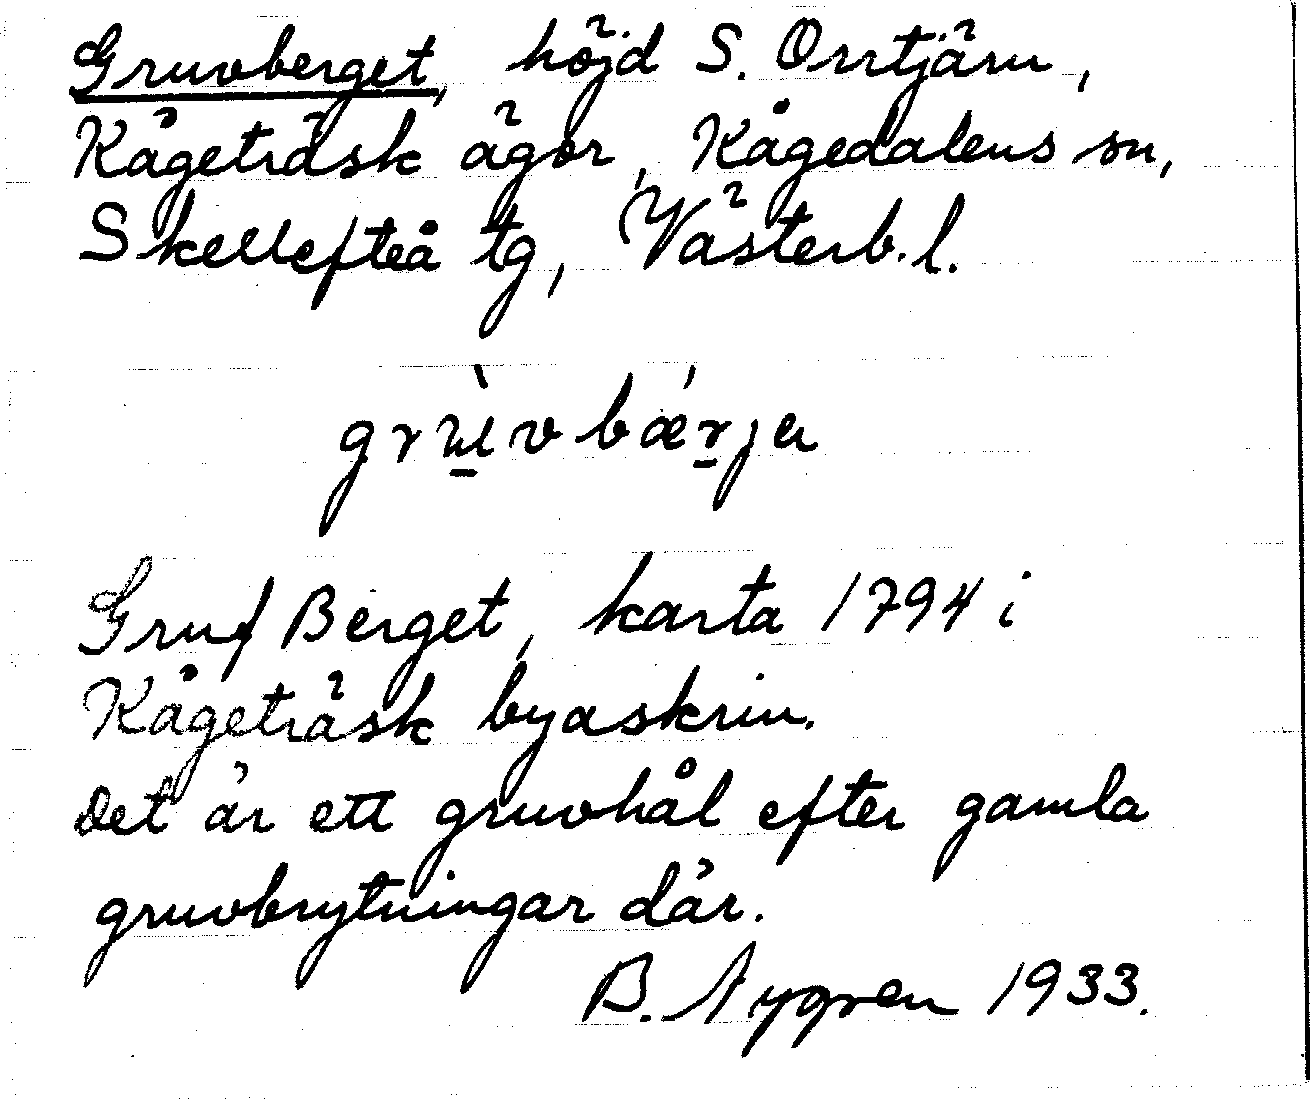 Gruvberget, höjd S. Orrtjärn,
Kågeträsk ägor, Kågedalens sn,
Skellefteå tg, Västerb. l.
grùvbǽrja
Gruf Berget, karta 1794 i
Kågeträsk byaskrin.
Det är ett gruvhål efter gamla
gruvbrytningar där.
B. Nygren 1933.